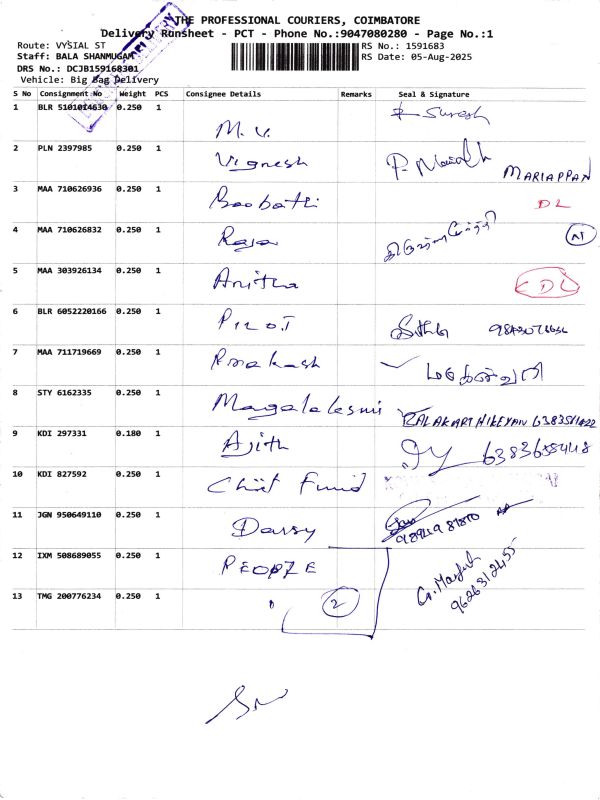 THE PROFESSIONAL COURIERS, COIMBATORE
Delivery Runsheet - PCT - Phone No.:9047080280 - Page No.:1
Route: VYSIAL ST RS No.: 1591683
Staff: BALA SHANMUGAM RS Date: 05-Aug-2025
DRS No.: DCJB159168301
Vehicle: Big Bag Delivery
S No Consignment No Weight PCS Consignee Details Remarks Seal & Signature
1 BLR 5101014630 0.250 1 M. V. Suresh
2 PLN 2397985 0.250 1 Vignesh MARIAPPAN
3 MAA 710626936 0.250 1 DL
4 MAA 710626832 0.250 1 Raja
5 MAA 303926134 0.250 1 Anitha
6 BLR 6052220166 0.250 1
7 MAA 711719669 0.250 1 Prakash
8 STY 6162335 0.250 1 Magalaksmi KALAKARTHIKEYAN
9 KDI 297331 0.180 1 Ajith 6383655448
10 KDI 827592 0.250 1 Chit Fund
11 JGN 950649110 0.250 1
12 IXM 508689055 0.250 1 PEOPLE
13 TMG 200776234 0.250 1 2